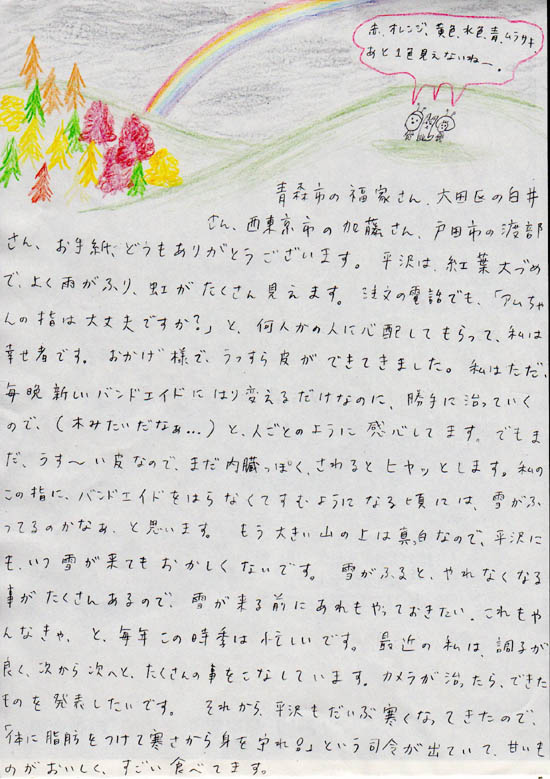 赤、オレンジ、黄色、水色、青、ムラサキ
あと1色見えないねー。
青森市の福家さん、大田区の白井
さん、西東京市の加藤さん、戸田市の渡部
さん、お手紙、どうもありがとうございます。 平沢は、紅葉大づめ
で、よく雨がふり、虹がたくさん見えます。 注文の電話でも、「アムちゃ
んの指は大丈夫ですか?」と、何人かの人に心配してもらって、私は
幸せ者です。 おかげ様で、うっすら皮ができてきました。 私はただ、
毎晩新しいバンドエイドにはり変えるだけなのに、勝手に治っていく
ので、(木みたいだなぁ...)と、人ごとのように感心してます。でもま
だ、うす〜い皮なので、まだ内臓っぽく、さわるとヒヤッとします。私の
この指に、バンドエイドをはらなくてすむようになる頃には、雪がふ
ってるのかなぁ、と思います。 もう大きい山の上は真っ白なので、平沢に
も、いつ雪が来てもおかしくないです。 雪がふると、やれなくなる
事がたくさんあるので、雪が来る前にあれもやっておきたい、これもや
んなきゃ、と、毎年この時季は忙しいです。 最近の私は、調子が
良く、次から次へと、たくさんの事をこなしています。カメラが治ったら、できた
ものを発表したいです。 それから、平沢もだいぶ寒くなってきたので、
「体に脂肪をつけて寒さから身を守れ!」という司令が出ていて、甘いも
のがおいしく、すごい食べてます。